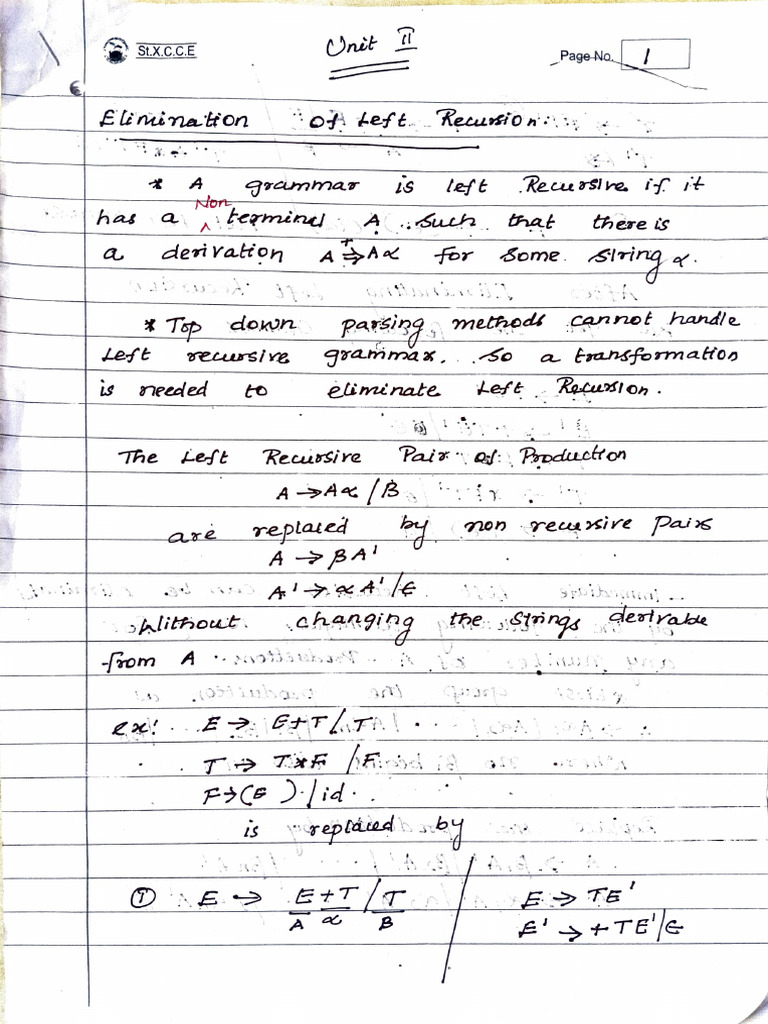 St.X.C.C.E
Unit II
Page No. 1
Elimination of Left Recursion:
* A grammar is left Recursive if it
Non
has a ^ terminal A such that there is
a derivation A ⇒+ Aα for some string α.
* Top down parsing methods cannot handle
Left recursive grammar. So a transformation
is needed to eliminate Left Recursion.
The Left Recursive Pair of Production
A → Aα / β
are replaced by non recursive pairs
A → βA'
A' → αA'/ε
Without changing the strings derivable
from A.
ex: E → E+T / T
T → T*F / F
F → (E) / id.
is replaced by
E → E+T / T
A α β
E → TE'
E' → +TE'/ε